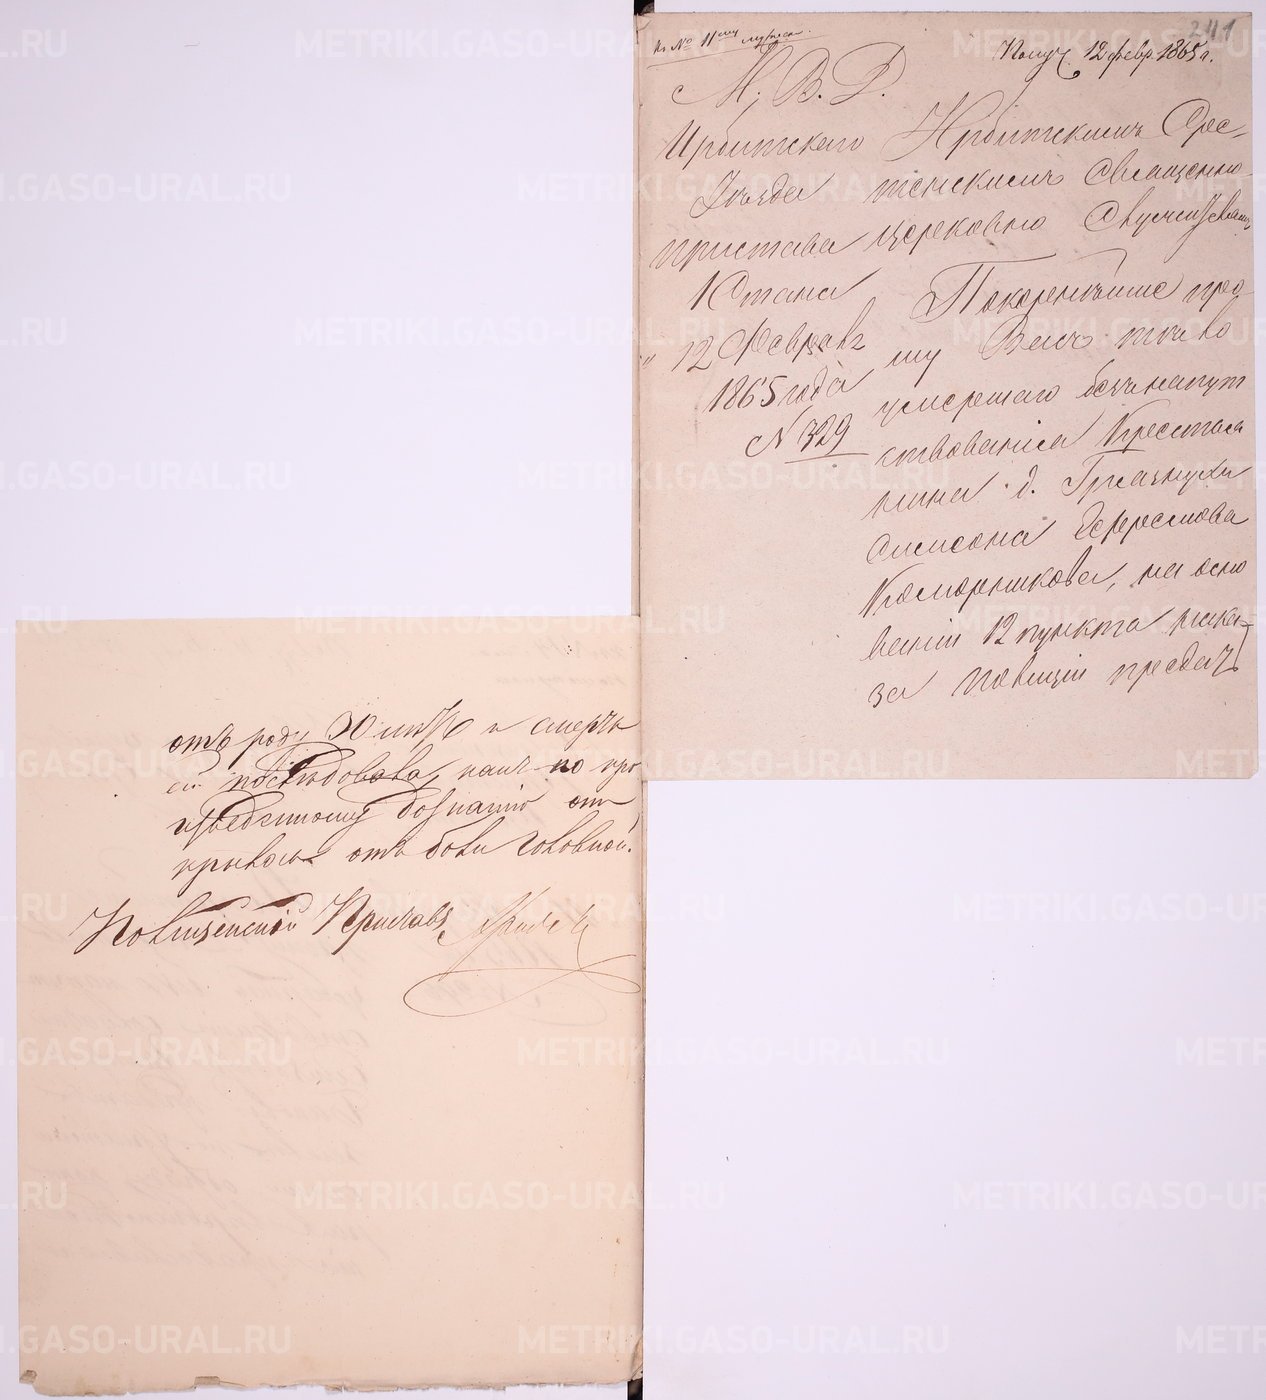 къ № 11му мужск.
241
Получ. 12 февр. 1865 г.
М. В. Д.
Ирбитскаго
Уѣзда
Пристава
1 Стана
12 Февраля
1865 года
№ 329
Ирбитскимъ Сре-
тенскимъ Священно
церковно Служителямъ
Покорнѣйше про
шу Васъ тѣло
умершаго безъ напут
ствованія Крестья
нина д. Грязнухи
Симеона Ефремова
на осно
ваніи 12 пункта нака
за полиціи предать
отъ роду 30 лѣтъ и смерть
послѣдовала, какъ по про
изведенному дознанію от
крылось отъ боли головной.
Полицейскій Приставъ
METRIKI.GASO-URAL.RU